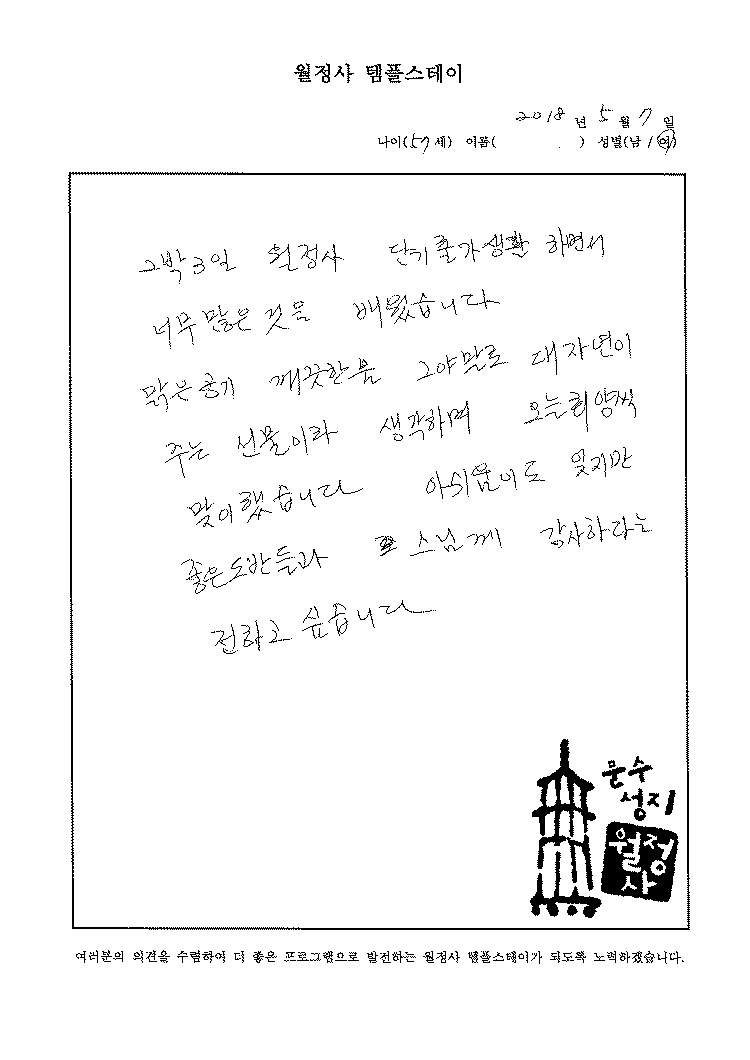 월정사 템플스테이
2018 년 5 월 7 일
나이(57세) 이름( ) 성별(남/여)
2박3일 월정사 단기출가생활 하면서
너무 많은 것을 배웠습니다
맑은공기 깨끗한물 그야말로 대자연이
주는 선물이라 생각하며 오늘
맞이했습니다 아쉬움이도 있지만
좋은도반들과 스님께 감사하다는
전하고 싶습니다
문수
성지
월정
사
여러분의 의견을 수렴하여 더 좋은 프로그램으로 발전하는 월정사 템플스테이가 되도록 노력하겠습니다.